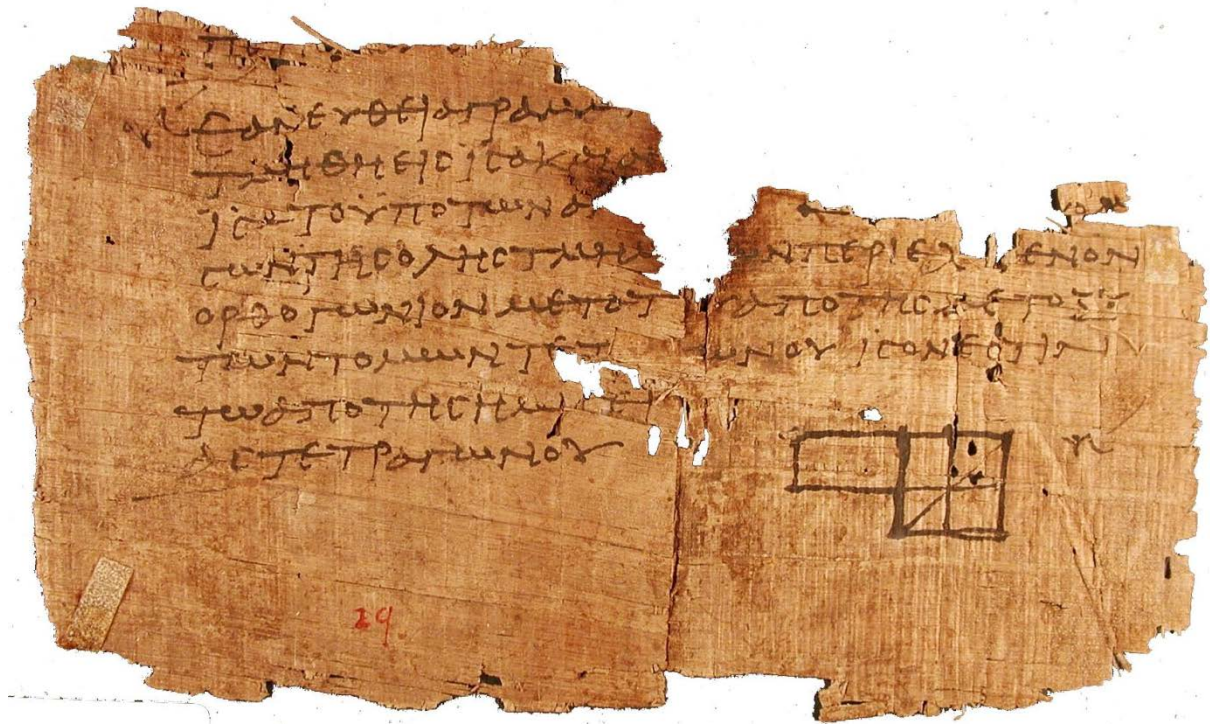 ΕΑΝ ΕΥΘΕΙΑ ΓΡΑΜΜ
ΤΜΗΘΗ ΕΙϹ ΙϹΑ ΚΑΙ Α
ΙϹΑ ΤΟ ΫΠΟ ΤΩΝ Α
ϹΩΝ ΤΗϹ ΟΛΗϹ ΤΜΗΜ Ν ΠΕΡΙΕΧ ΜΕΝΟΝ
ΟΡΘΟΓΩΝΙΟΝ ΜΕΤΑ Τ ΑΠΟ ΤΗϹ ΜΕΤΟΞΥ
ΤΩΝ ΤΟΜΩΝ ΤΕΤ ΩΝΟΥ ΙϹΟΝ ΕϹΤΙΝ
ΤΩ ΑΠΟ ΤΗϹ ΗΜΙϹΕΙ
ΑϹ ΤΕΤΡΑΓΩΝΟΥ
29